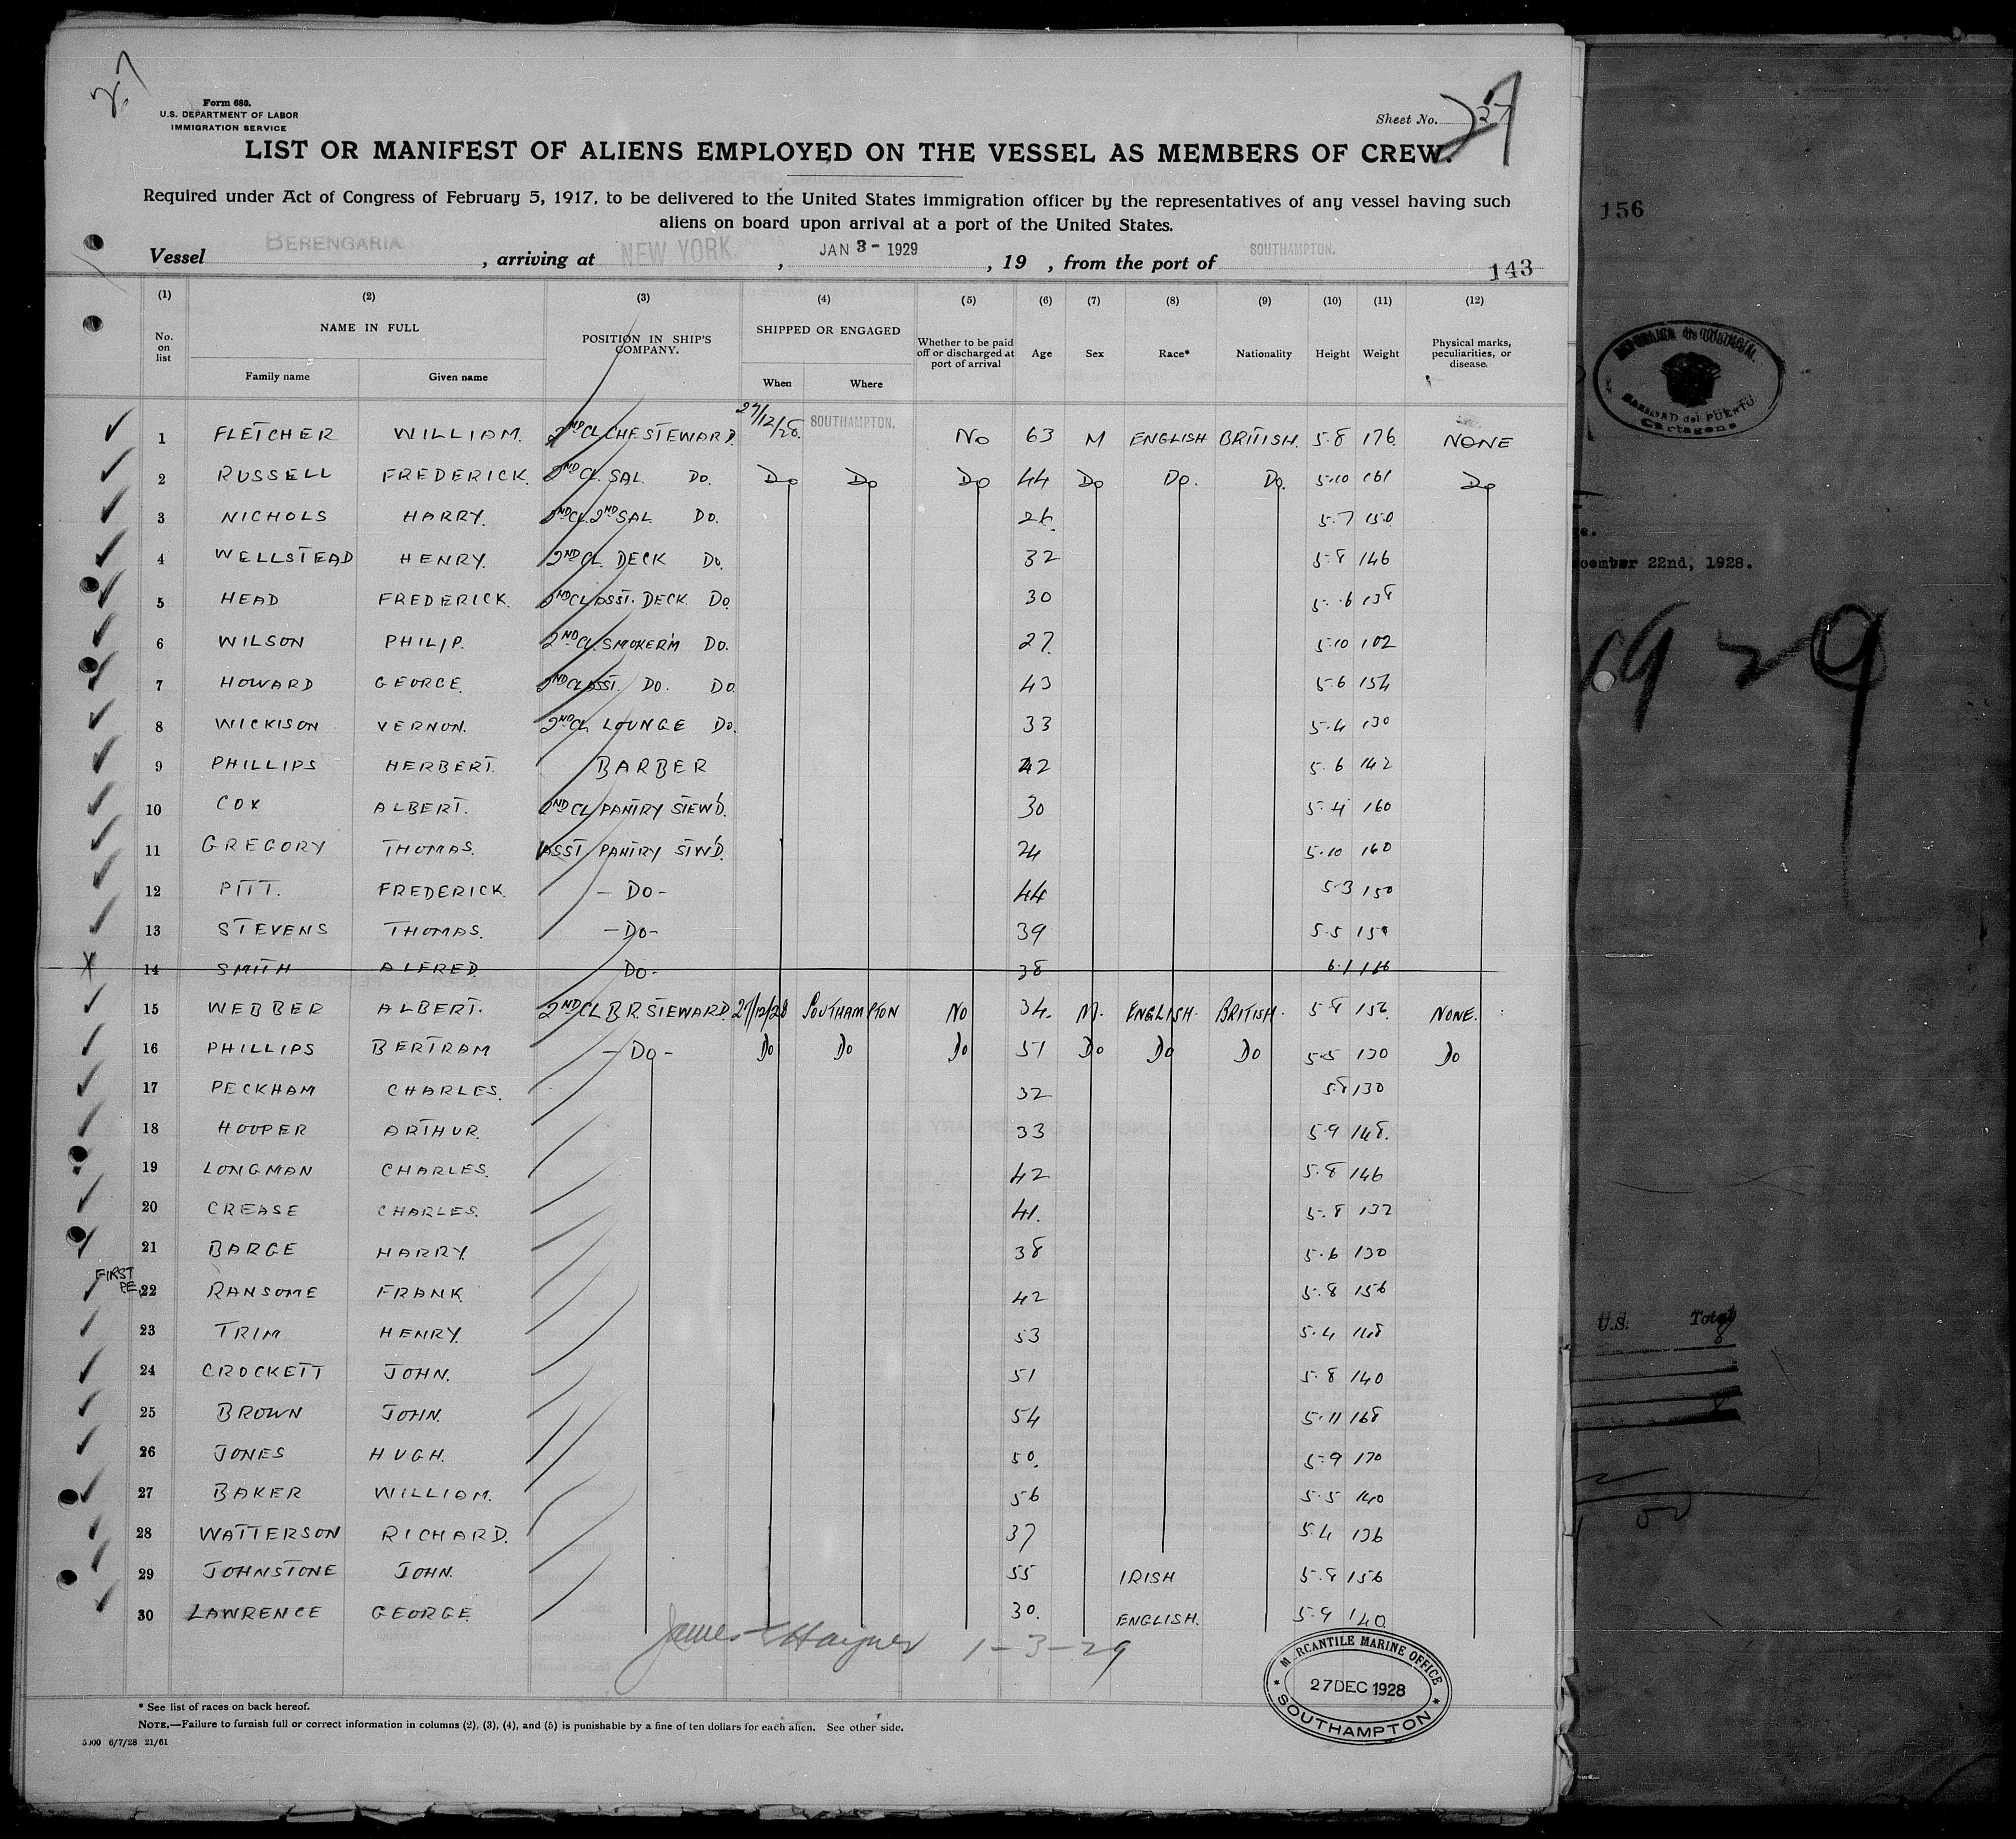 27
Form 680.
U.S. DEPARTMENT OF LABOR
IMMIGRATION SERVICE
Sheet No. 27
LIST OR MANIFEST OF ALIENS EMPLOYED ON THE VESSEL AS MEMBERS OF CREW.
Required under Act of Congress of February 5, 1917, to be delivered to the United States immigration officer by the representatives of any vessel having such
aliens on board upon arrival at a port of the United States.
Vessel BERENGARIA, arriving at NEW YORK, JAN 3- 1929, 19 , from the port of SOUTHAMPTON.
143
(1) (2) (3) (4) (5) (6) (7) (8) (9) (10) (11) (12)
No. on list NAME IN FULL Family name Given name POSITION IN SHIP'S COMPANY. SHIPPED OR ENGAGED When Where Whether to be paid off or discharged at port of arrival Age Sex Race* Nationality Height Weight Physical marks, peculiarities, or disease.
1 FLETCHER WILLIAM. 2ND CL CHE STEWARD. 27/12/28. SOUTHAMPTON. No 63 M ENGLISH BRITISH. 5-8 176 NONE
2 RUSSELL FREDERICK. 2ND CL. SAL. Do. Do Do Do 44 Do Do. Do. 5-10 161 Do
3 NICHOLS HARRY. 2ND CL 2ND SAL Do. 26. 5.7 150
4 WELLSTEAD HENRY. 2ND CL. DECK Do. 32 5-8 146
5 HEAD FREDERICK. 2ND CL ASST. DECK Do 30 5-6 138
6 WILSON PHILIP. 2ND CL. SMOKER'M Do. 27. 5-10 102
7 HOWARD GEORGE. 2ND CL ASST. Do. Do 43 5.6 154
8 WICKISON VERNON. 2ND CL LOUNGE Do. 33 5.4 130
9 PHILLIPS HERBERT. BARBER 42 5.6 142
10 COX ALBERT. 2ND CL PANTRY STEW'D. 30 5-4 160
11 GREGORY THOMAS. ASST PANTRY STW'D. 24 5-10 160
12 PITT. FREDERICK. -DO- 44 5-3 150
13 STEVENS THOMAS. -DO- 39 5.5
14 SMITH ALFRED DO- 38 6.1
15 WEBBER ALBERT. 2ND CL B.R. STEWARD. 27/12/28 SOUTHAMPTON NO 34. M. ENGLISH. BRITISH. 5-8 156. NONE.
16 PHILLIPS BERTRAM -DO- Do Do Do 51 Do Do Do 5-5 130 Do
17 PECKHAM CHARLES. 32 5.8 130
18 HOOPER ARTHUR. 33 5.9 148.
19 LONGMAN CHARLES. 42 5.8 146
20 CREASE CHARLES. 41. 5-8 132
21 BARGE HARRY 38 5.6 130
FIRST
22 RANSOME FRANK 42 5.8 156
23 TRIM HENRY. 53 5.4 148
24 CROCKETT JOHN. 51 5.8 140
25 BROWN JOHN. 54 5.11 168
26 JONES HUGH. 50. 5-9 170
27 BAKER WILLIAM. 56 5.5 140
28 WATTERSON RICHARD. 37 5.4 136
29 JOHNSTONE JOHN. 55 IRISH 5.8 156
30 LAWRENCE GEORGE. 30. ENGLISH. 5-9 140
James 1-3-29
MERCANTILE MARINE OFFICE
27 DEC 1928
SOUTHAMPTON
* See list of races on back hereof.
NOTE.—Failure to furnish full or correct information in columns (2), (3), (4), and (5) is punishable by a fine of ten dollars for each alien. See other side.
6/7/28 21/61
156
del PUERTO
Cartagena
cember 22nd, 1928.
1929
U.S. Total